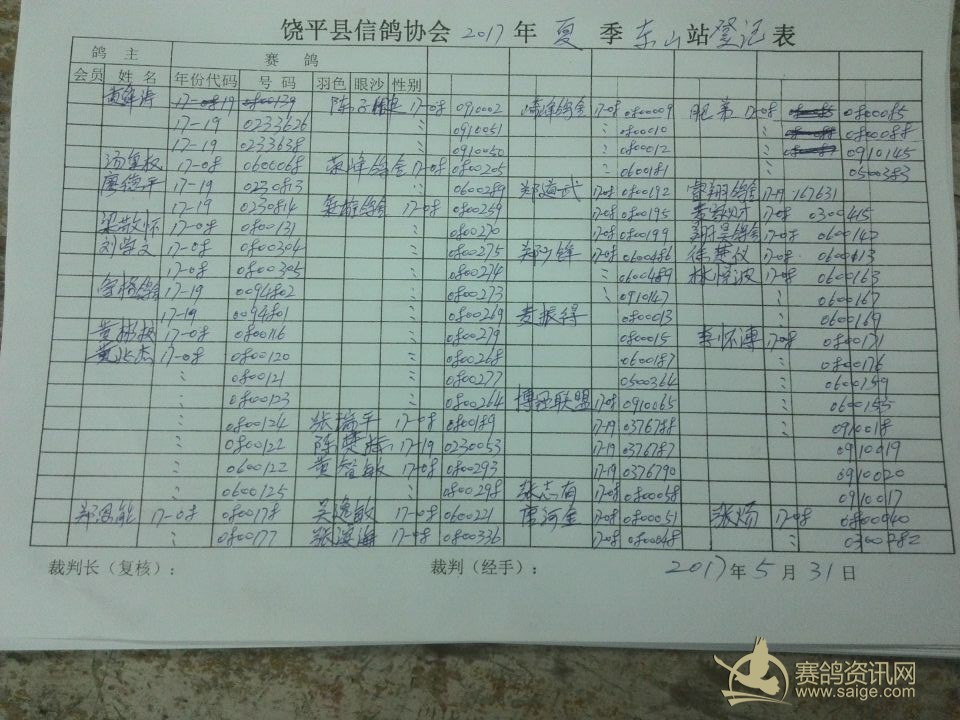 饶平县信鸽协会 2017 年 夏 季 东山 站 登记 表
鸽 主 赛 鸽
会员 姓 名 年份代码 号 码 羽色 眼沙 性别
17-19 17-08 0910002 17-08 0800009 肥弟 17-08 0800085
17-19 0233626 〃 0910051 〃 0800010 〃 0800088
17-19 0233638 〃 0910050 〃 0800012 〃 0910145
17-08 0600068 荣峰鸽舍 17-08 0800205 〃 0600181 〃 0500383
17-19 0230813 〃 0600289 郑道武 17-08 0800192 17-19 167631
17-19 0230814 17-08 0800259 17-08 0800195 17-08 0300415
梁敬怀 17-08 0800131 〃 0800270 17-08 0800199 17-08 0600147
刘学文 17-08 0800304 〃 0800275 17-08 0600486 徐楚仪 17-08 0600613
17-08 0800305 〃 0800274 〃 0600489 17-08 0600163
17-19 0094802 〃 0800273 〃 0910147 〃 0600167
17-19 0094801 〃 0800269 黄振得 0800013 〃 0600169
17-08 0800116 〃 0800279 0800015 李怀连 17-08 0800171
17-08 0800120 〃 0800268 0600187 〃 0800176
〃 0800121 〃 0800277 0500364 〃 0600159
〃 0800123 〃 0800264 联盟 17-08 0910065 〃 0600155
〃 0800124 张瑞平 17-08 0800189 17-19 0376788 〃 0910018
〃 0800122 17-19 0230053 17-19 0376787 0910019
〃 0600122 17-08 0800293 17-19 0376790 0910020
〃 0600125 0800298 张志有 17-08 0800058 0910017
郑恩能 17-08 0800178 17-08 0600221 17-08 0800051 17-08 0800040
〃 0800177 张滨海 17-08 0800336 17-08 0800048 〃 0300282
裁判长（复核）： 裁判（经手）： 2017 年 5 月 31 日
赛鸽资讯网
www.saige.com